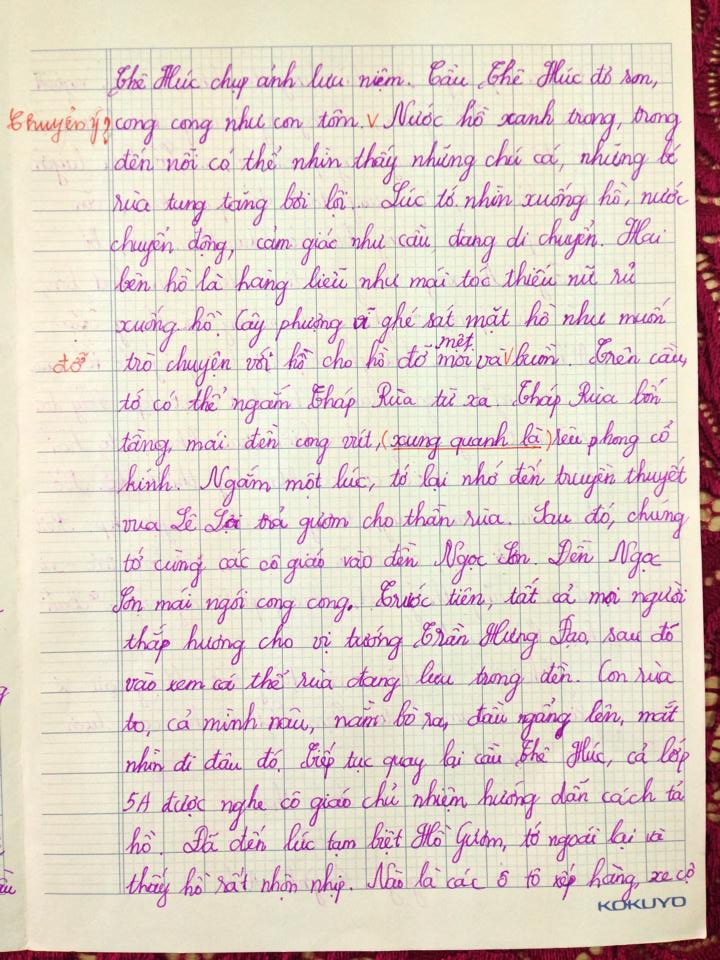 Thê Húc chụp ảnh lưu niệm. Cầu Thê Húc đỏ son,
Chuyển ý? cong cong như con tôm. V Nước hồ xanh trong, trong
đến nỗi có thể nhìn thấy những chú cá, những bé
rùa tung tăng bơi lội. Lúc tớ nhìn xuống hồ, nước
chuyển động, cảm giác như cầu đang di chuyển. Hai
bên hồ là hàng liễu như mái tóc thiếu nữ rủ
xuống hồ. Cây phượng vĩ ghé sát mặt hồ như muốn
mệt
đỡ trò chuyện với hồ cho hồ đỡ mỏi và V buồn. Trên cầu,
tớ có thể ngắm Tháp Rùa từ xa. Tháp Rùa bốn
tầng, mái đền cong vút, (xung quanh là) rêu phong cổ
kính. Ngắm một lúc, tớ lại nhớ đến truyền thuyết
vua Lê Lợi trả gươm cho thần rùa. Sau đó, chung
tớ cùng các cô giáo vào đền Ngọc Sơn. Đền Ngọc
Sơn mái ngói cong cong. Trước tiên, tất cả mọi người
thắp hương cho vị tướng Trần Hưng Đạo, sau đó
vào xem cá thể rùa đang lưu trong đền. Con rùa
to, cả mình nâu, nằm bò ra, đầu ngẩng lên, mắt
nhìn đi đâu đó. Tiếp tục quay lại cầu Thê Húc, cả lớp
5A được nghe cô giáo chủ nhiệm hướng dẫn cách tả
hồ. Đã đến lúc tạm biệt Hồ Gươm, tớ ngoái lại và
thấy hồ rất nhộn nhịp. Nào là các ô tô xếp hàng, xe cộ
KOKUYO